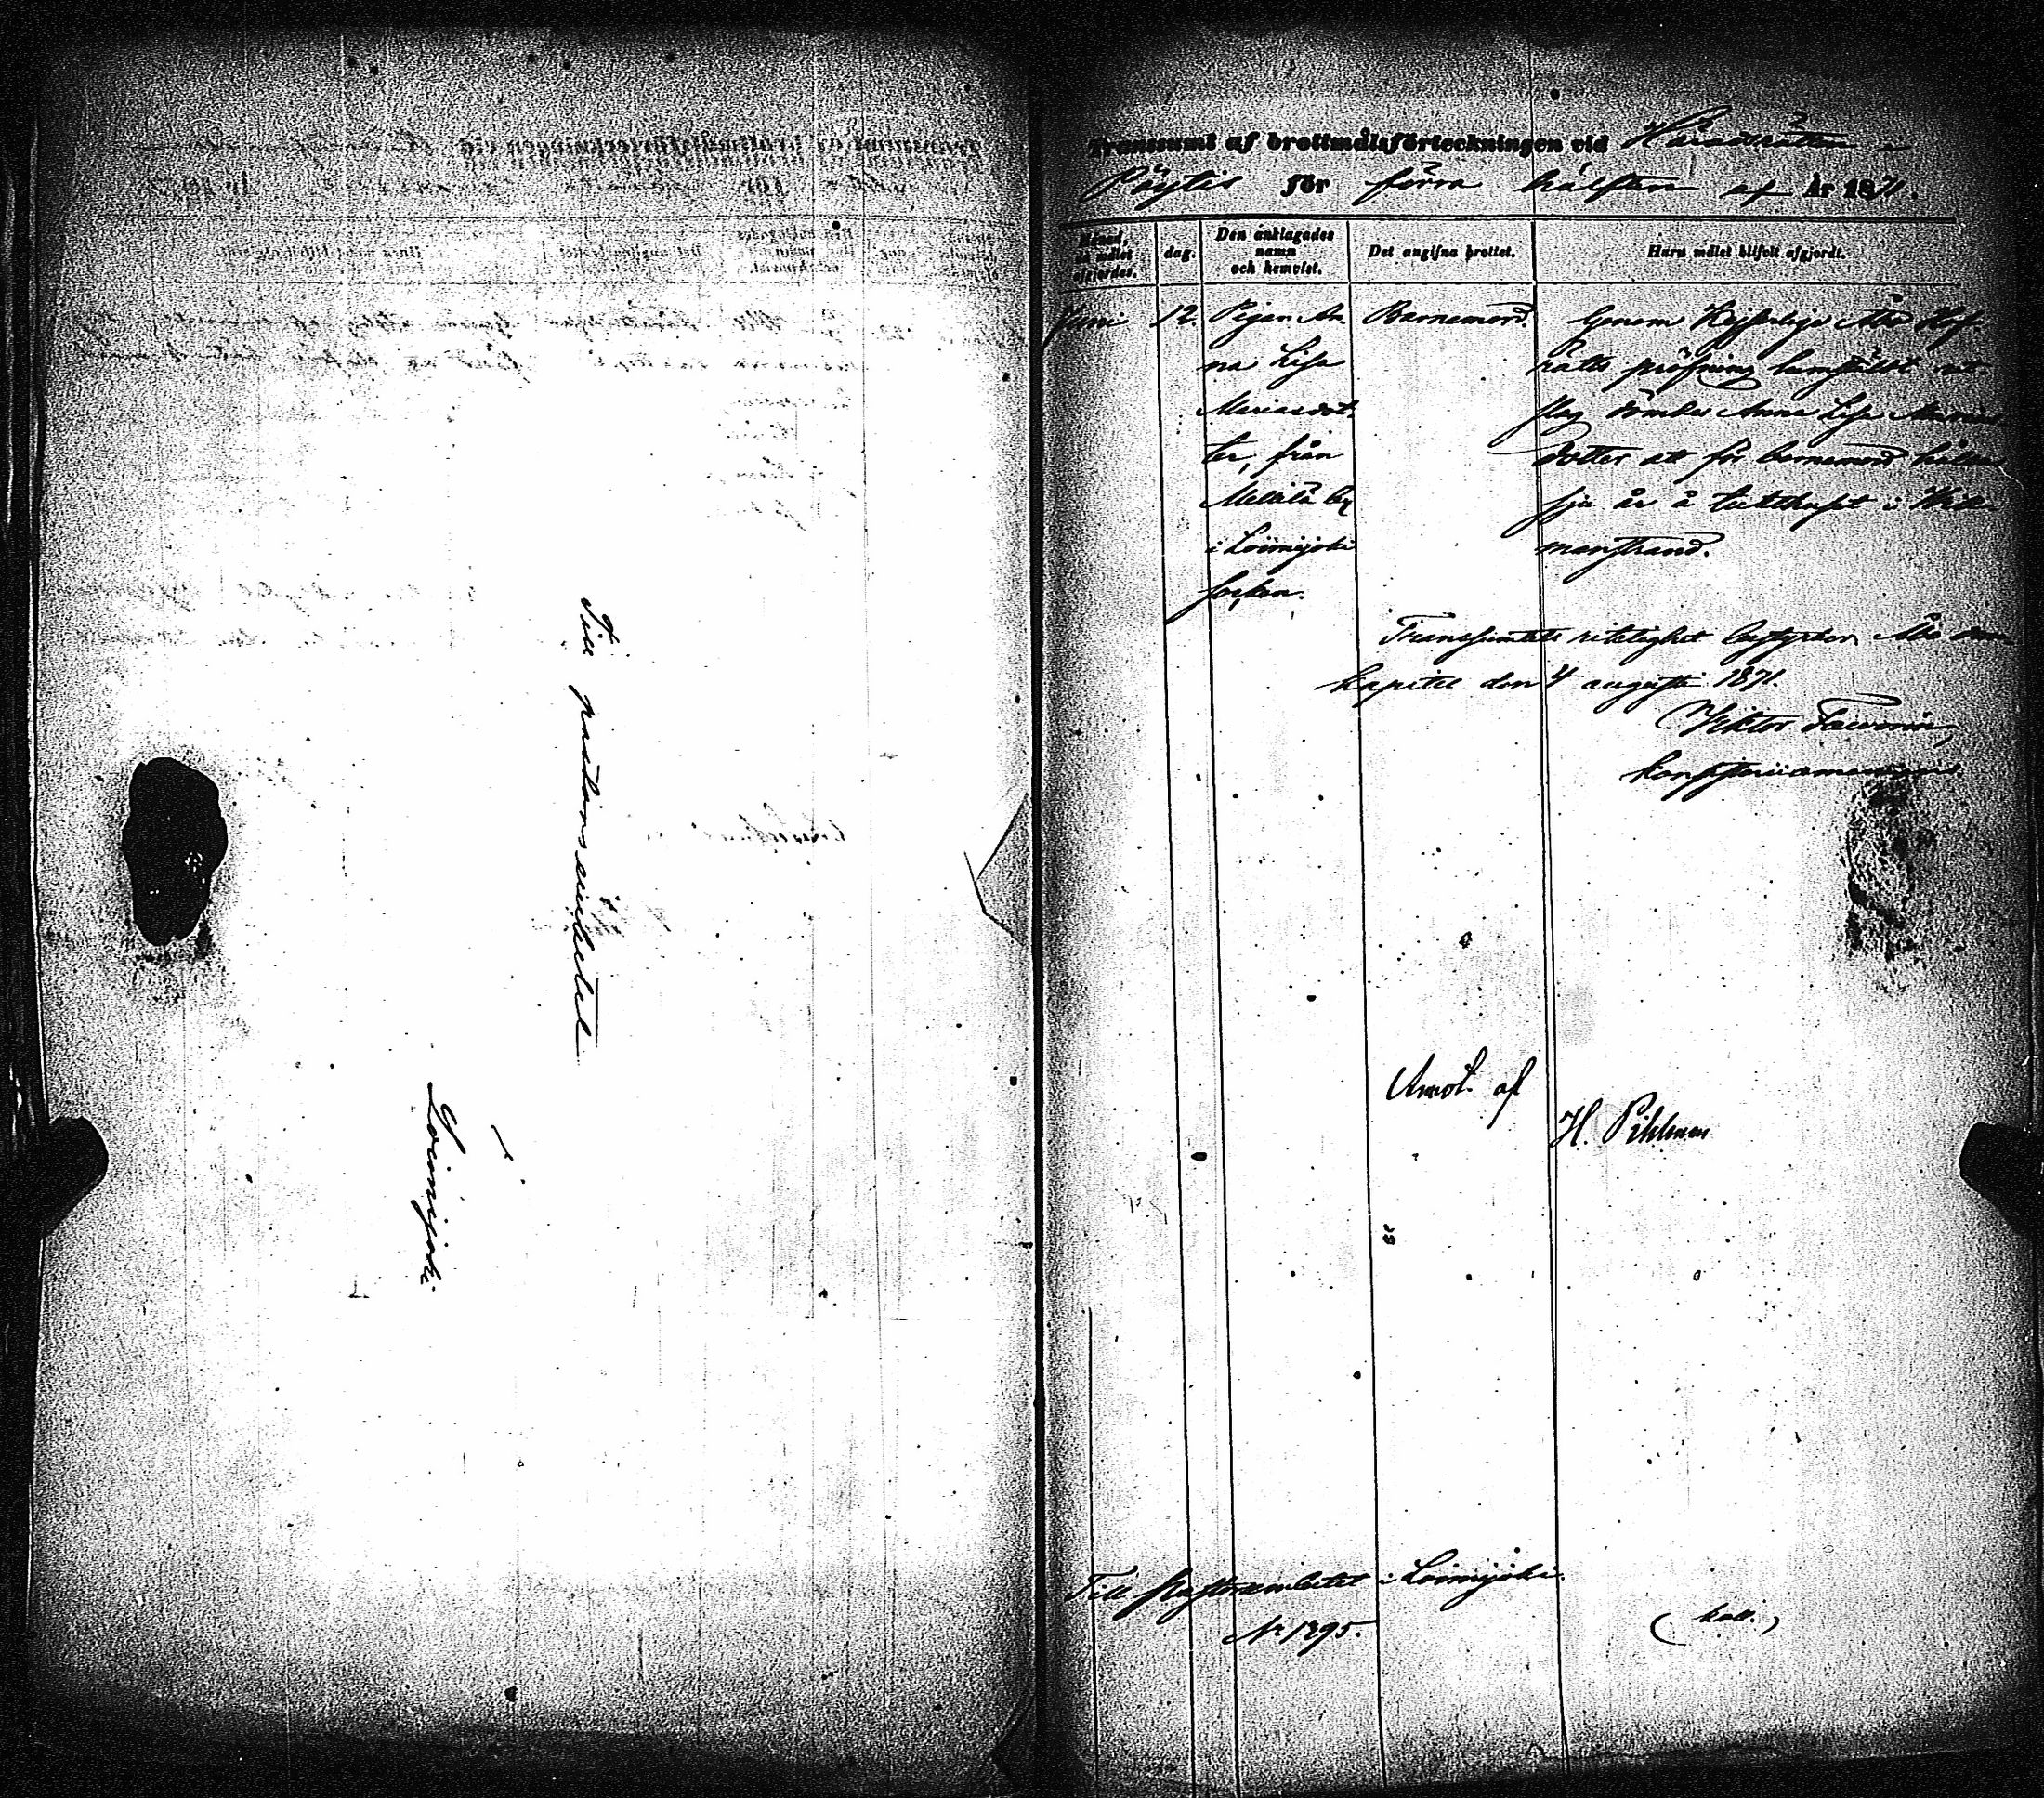 Till pastorsembetet
i
Loimijoki.
Transsumt af brottmålsförteckningen vid Häradsrätten i
Pöytis för förra hälften af År 1871.
Månad, då målet afgjordes.
dag.
Den anklagades namn och hemvist.
Det angifna brottet.
Huru målet blifvit afgjordt.
Juni
12.
Pigan An
na Lisa
Mariasdot
ter, från
Mellilä by
i Loimijoki
socken.
Barnemord.
Genom Kejserlige Åbo Hof-
rätts pröfning hemstäldt ut
slag dömdes Anna Lisa Marias
dotter att för barnemord hållas
sju år å tukthuset i Will-
manstrand.
Transsumtets riktighet bestyrker. Åbo dom
kapitel den 4 augusti 1871.
Viktor
Konsistoriiamanuens.
Emot. af
H.
Till Pastorsembetet i Loimijoki.
N:o 1295.
( koll. )